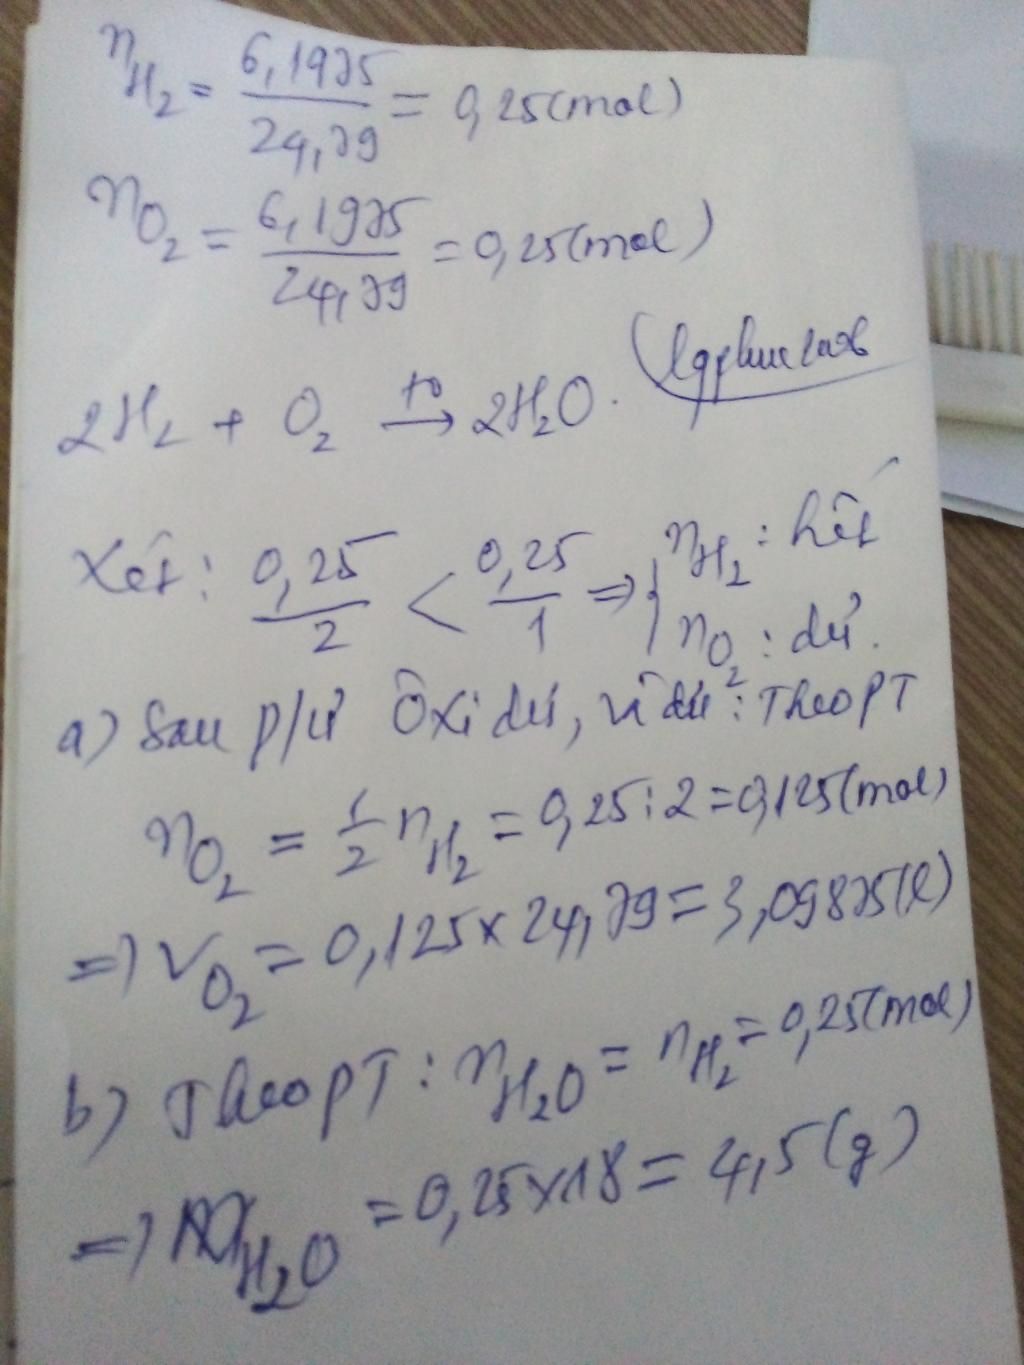 n_H₂ = 6,1975/24,79 = 0,25(mol)
n_O₂ = 6,1975/24,79 = 0,25(mol)
2H₂ + O₂ →(t°) 2H₂O.
Xét: 0,25/2 < 0,25/1 => { n_H₂: hết
n_O₂: dư.
a) Sau p/ư Ôxi dư, vì dư: Theo PT
n_O₂ = 1/2 n_H₂ = 0,25:2 = 0,125(mol)
=> V_O₂ = 0,125x24,79 = 3,09875(l)
b) Theo PT: n_H₂O = n_H₂ = 0,25(mol)
=> m_H₂O = 0,25x18 = 4,5(g)